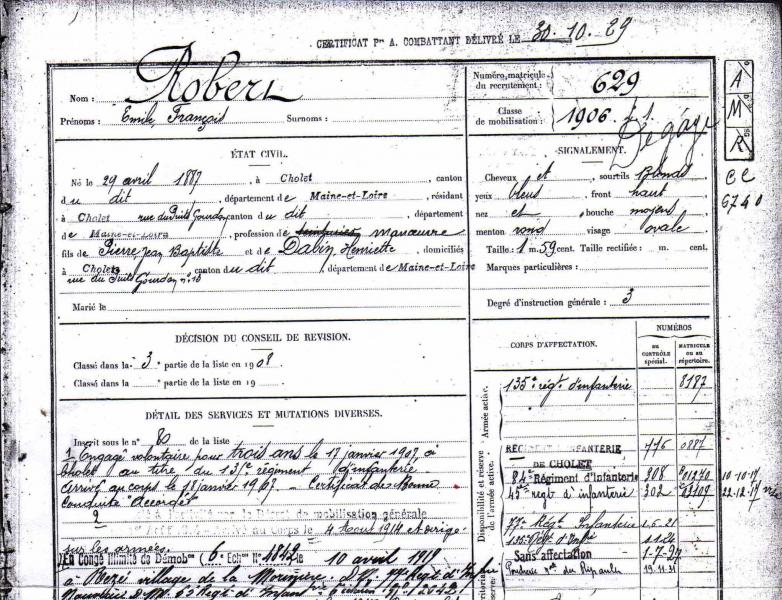 CERTIFICAT Pr A. COMBATTANT DÉLIVRÉ LE 30-10-29
Nom : Robert
Prénoms : Emile, François Surnoms :
Numéro matricule du recrutement : 629
Classe de mobilisation : 1906
Dégagé
A
M
R
CC
6740
ÉTAT CIVIL.
Né le 29 avril 1887, à Cholet, canton
du dit, département de Maine-et-Loire, résidant
à Cholet rue du Puits Gourdon canton du dit, département
de Maine-et-Loire, profession de manœuvre
fils de Pierre, Jean Baptiste et de Dabin Henriette, domiciliés
à Cholet canton du dit, département de Maine-et-Loire
rue du Puits Gourdon n° 10
Marié le
SIGNALEMENT.
Cheveux et sourcils Blonds
yeux bleus front haut
nez et bouche moyens
menton rond visage ovale
Taille : 1 m. 59 cent. Taille rectifiée : m. cent.
Marques particulières :
Degré d'instruction générale : 3
DÉCISION DU CONSEIL DE REVISION.
Classé dans la 3e partie de la liste en 1908
Classé dans la partie de la liste en 19
DÉTAIL DES SERVICES ET MUTATIONS DIVERSES.
Inscrit sous le n° 80 de la liste
Engagé volontaire pour trois ans le 17 janvier 1907, à
Cholet au titre du 135e régiment d'infanterie
Arrivé au corps le 18 janvier 1907. – Certificat de Bonne
Conduite Accordé
Décret de mobilisation générale
au Corps le 4 Août 1914 et dirigé
sur les armées.
En Congé illimité de Démob. (6e Echon N° 4842 le 10 avril 1919
à village de la
CORPS D'AFFECTATION.
NUMÉROS
AU CONTRÔLE spécial.
MATRICULE ou au répertoire.
Armée active.
135e régt d'infanterie 8187
Disponibilité et réserve de l'armée active.
RÉGIMENT D'INFANTERIE DE CHOLET 776 0887
84e Régiment d'Infanterie 908 10-10-17
régt d'infanterie 302 22-12-17
77e Régt Infanterie 1-6-21
Sans affectation 1-7-27
19.11.31